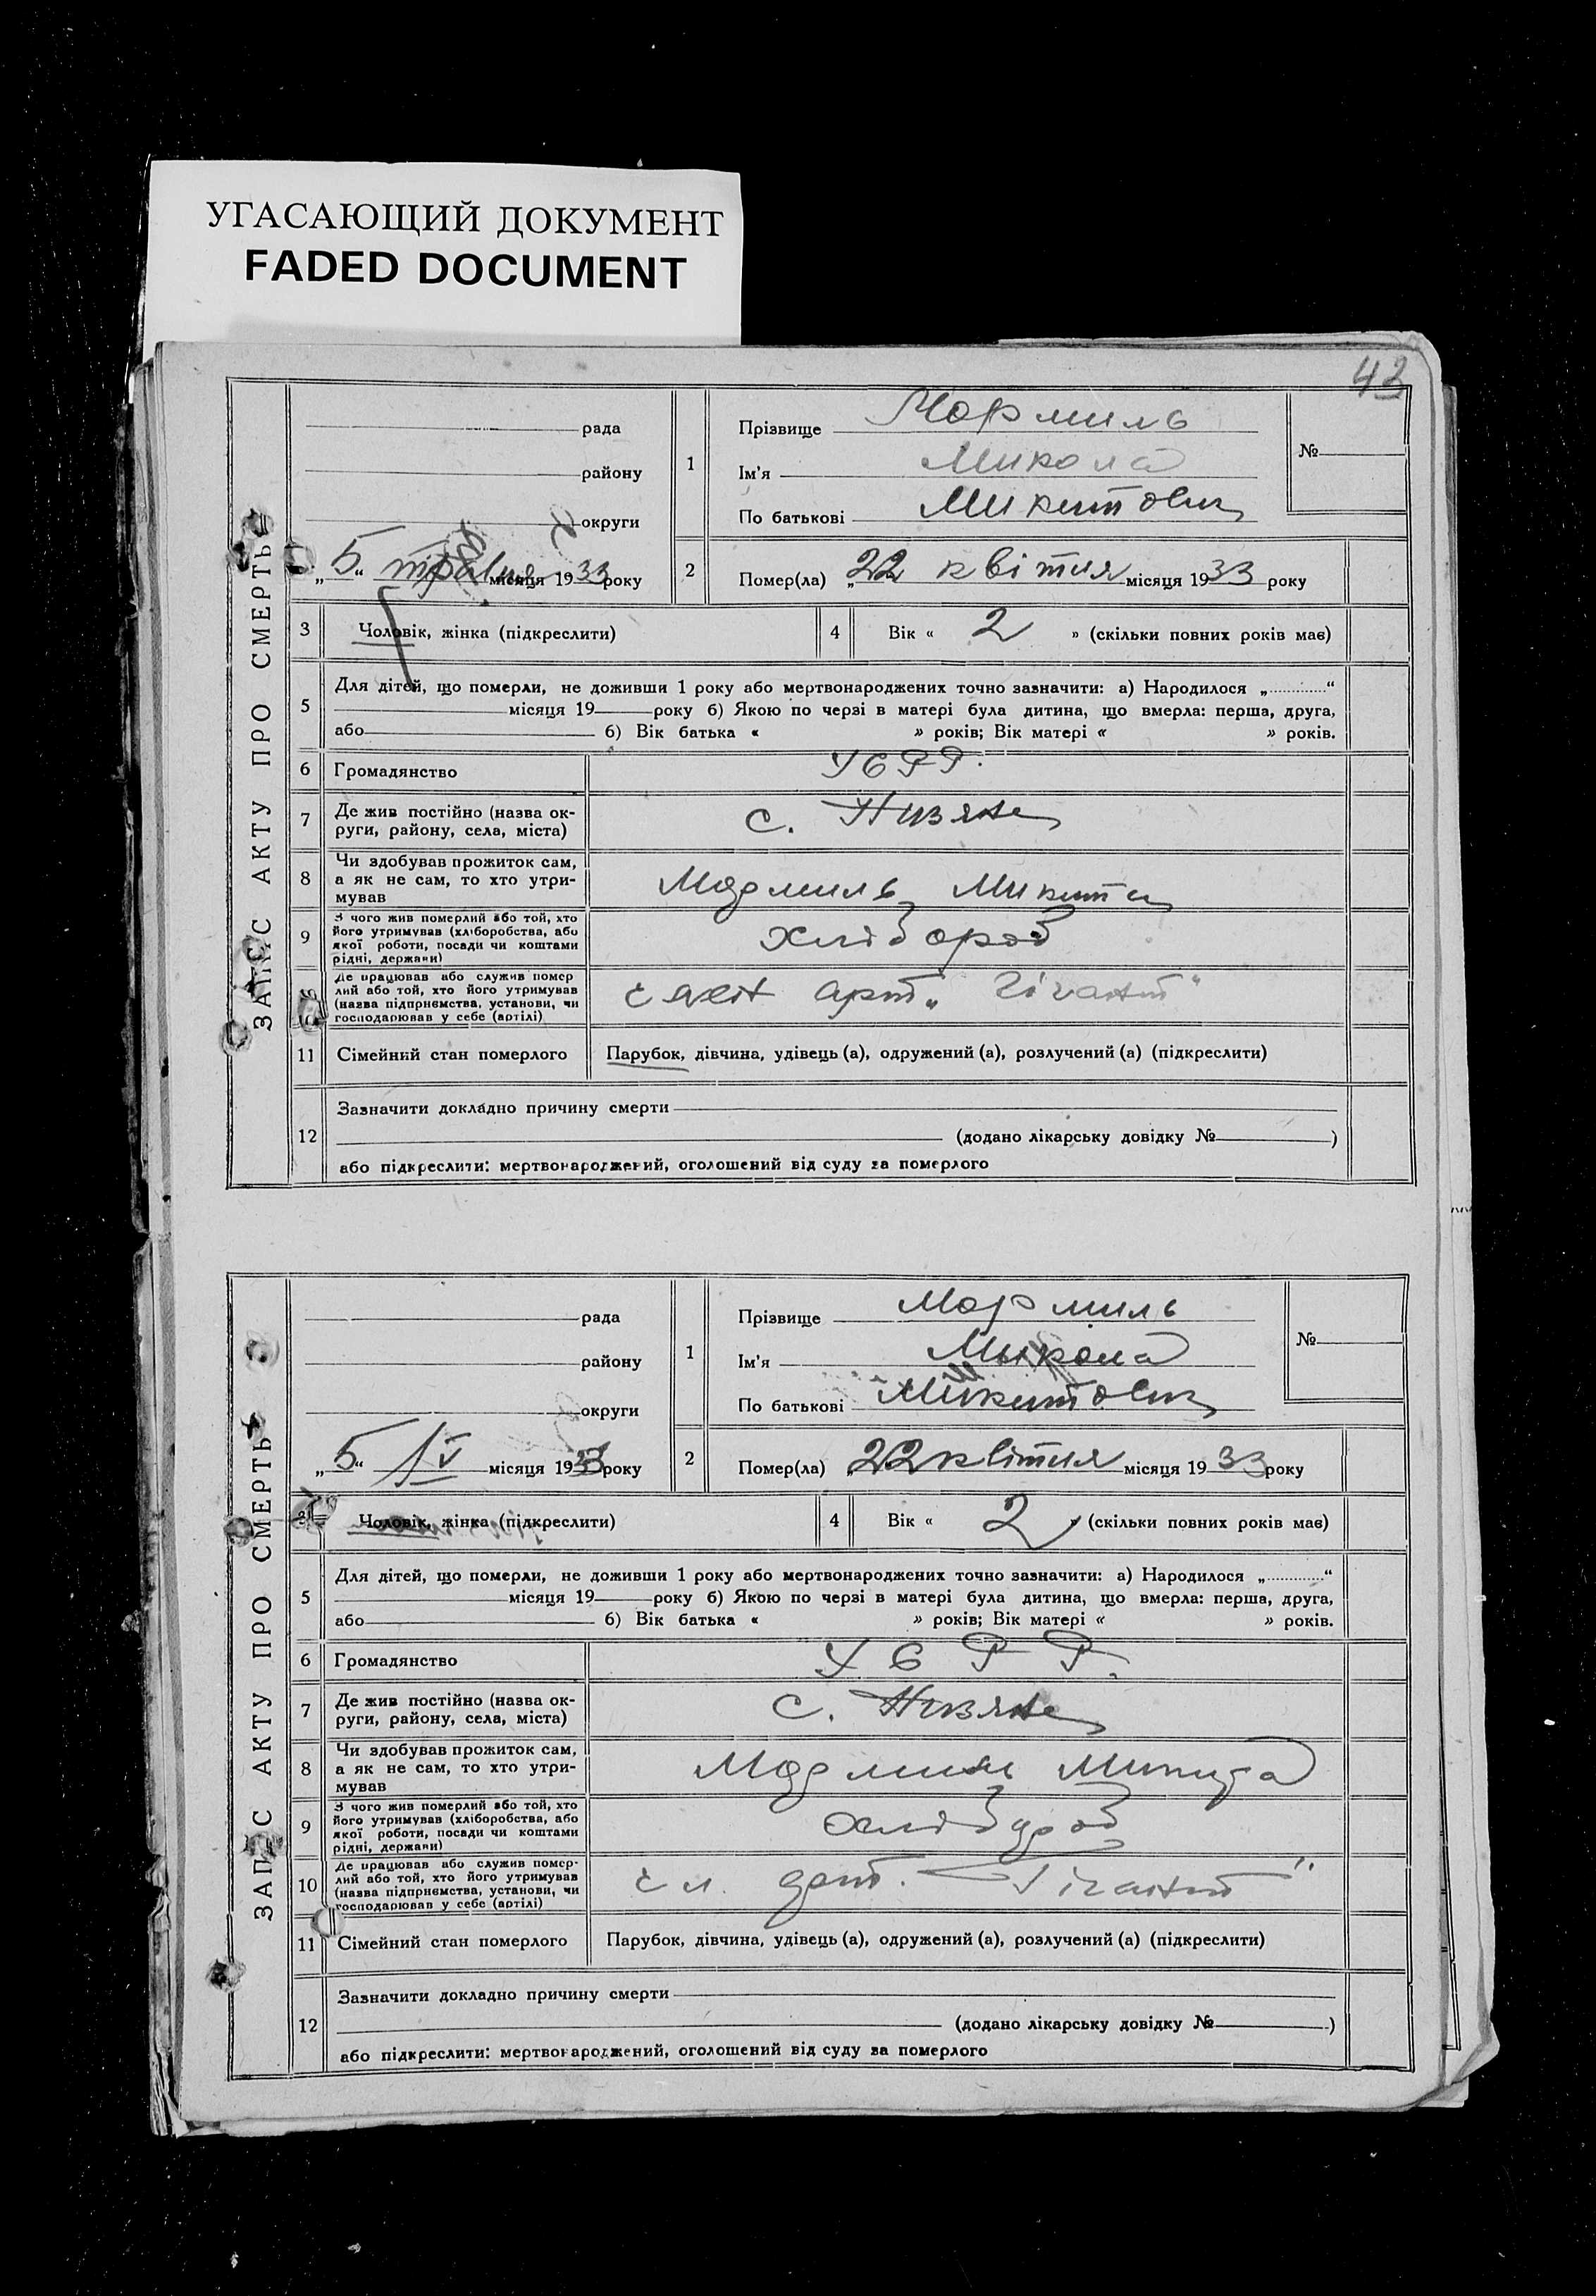 УГАСАЮЩИЙ ДОКУМЕНТ
FADED DOCUMENT
43
ЗАПИС АКТУ ПРО СМЕРТЬ
рада
району
округи
„5“ травня місяця 1933 року
1
Прізвище Мормиль
Ім'я Микола
По батькові Микитович
№
2
Помер(ла) „22 квітня місяця 1933 року
3
Чоловік, жінка (підкреслити)
4
Вік « 2 » (скільки повних років має)
5
Для дітей, що померли, не доживши 1 року або мертвонароджених точно зазначити: а) Народилося „ “
місяця 19 року б) Якою по черзі в матері була дитина, що вмерла: перша, друга,
або б) Вік батька « » років; Вік матері « » років.
6
Громадянство
УСРР.
7
Де жив постійно (назва ок-
руги, району, села, міста)
с. Низяне
8
Чи здобував прожиток сам,
а як не сам, то хто утри-
мував
Мормиль Микита
9
З чого жив померлий або той, хто
його утримував (хліборобства, або
якої роботи, посади чи коштами
рідні, держави)
хлібороб
10
Де працював або служив помер
лий або той, хто його утримував
(назва підприємства, установи, чи
господарював у себе (артілі)
арт „Гігант“
11
Сімейний стан померлого
Парубок, дівчина, удівець (а), одружений (а), розлучений (а) (підкреслити)
12
Зазначити докладно причину смерти
(додано лікарську довідку № )
або підкреслити: мертвонароджений, оголошений від суду за померлого
ЗАПИС АКТУ ПРО СМЕРТЬ
рада
району
округи
„5“ IV місяця 1933 року
1
Прізвище Мормиль
Ім'я Микола
По батькові Микитович
№
2
Помер(ла) „22 квітня місяця 1933 року
3
Чоловік, жінка (підкреслити)
4
Вік « 2 » (скільки повних років має)
5
Для дітей, що померли, не доживши 1 року або мертвонароджених точно зазначити: а) Народилося „ “
місяця 19 року б) Якою по черзі в матері була дитина, що вмерла: перша, друга,
або б) Вік батька « » років; Вік матері « » років.
6
Громадянство
УСРР.
7
Де жив постійно (назва ок-
руги, району, села, міста)
с. Низяне
8
Чи здобував прожиток сам,
а як не сам, то хто утри-
мував
Мормиль Микита
9
З чого жив померлий або той, хто
його утримував (хліборобства, або
якої роботи, посади чи коштами
рідні, держави)
хлібороб
10
Де працював або служив помер-
лий або той, хто його утримував
(назва підприємства, установи, чи
господарював у себе (артілі)
арт. „Гігант“
11
Сімейний стан померлого
Парубок, дівчина, удівець (а), одружений (а), розлучений (а) (підкреслити)
12
Зазначити докладно причину смерти
(додано лікарську довідку № )
або підкреслити: мертвонароджений, оголошений від суду за померлого